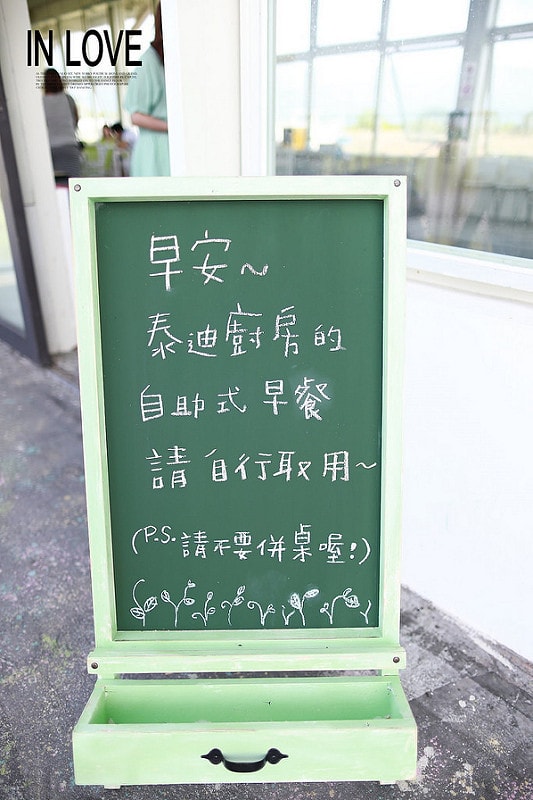 IN LOVE
早安~
泰迪廚房的
自助式早餐
請自行取用~
(P.S.請不要併桌喔!)